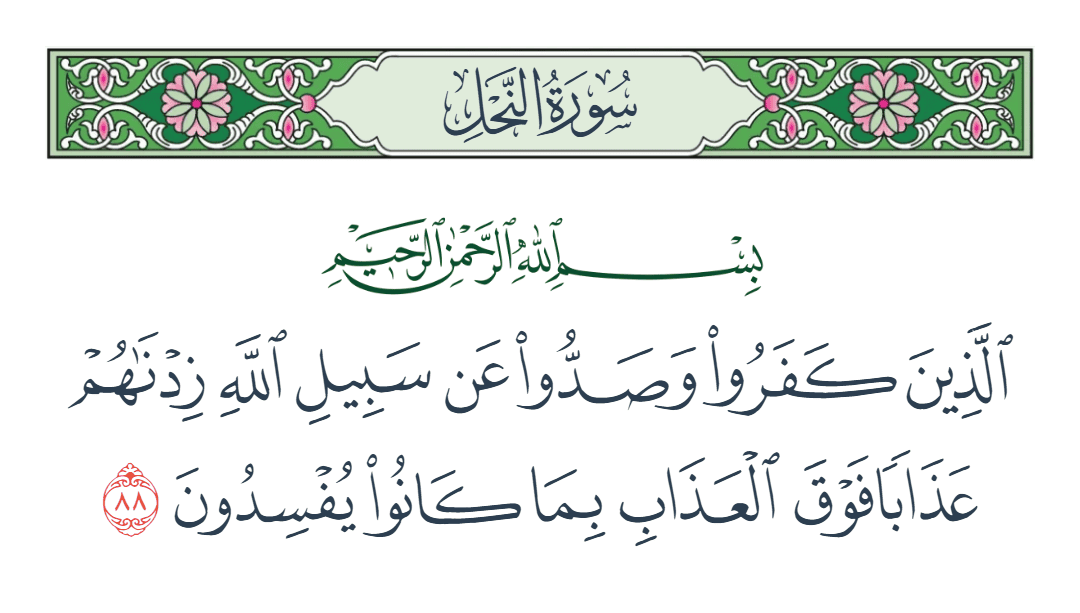 سُورَةُ النَّحْلِ
بِسْمِ ٱللَّهِ ٱلرَّحْمَٰنِ ٱلرَّحِيمِ
ٱلَّذِينَ كَفَرُوا۟ وَصَدُّوا۟ عَن سَبِيلِ ٱللَّهِ زِدْنَٰهُمْ
عَذَابًا فَوْقَ ٱلْعَذَابِ بِمَا كَانُوا۟ يُفْسِدُونَ ٨٨